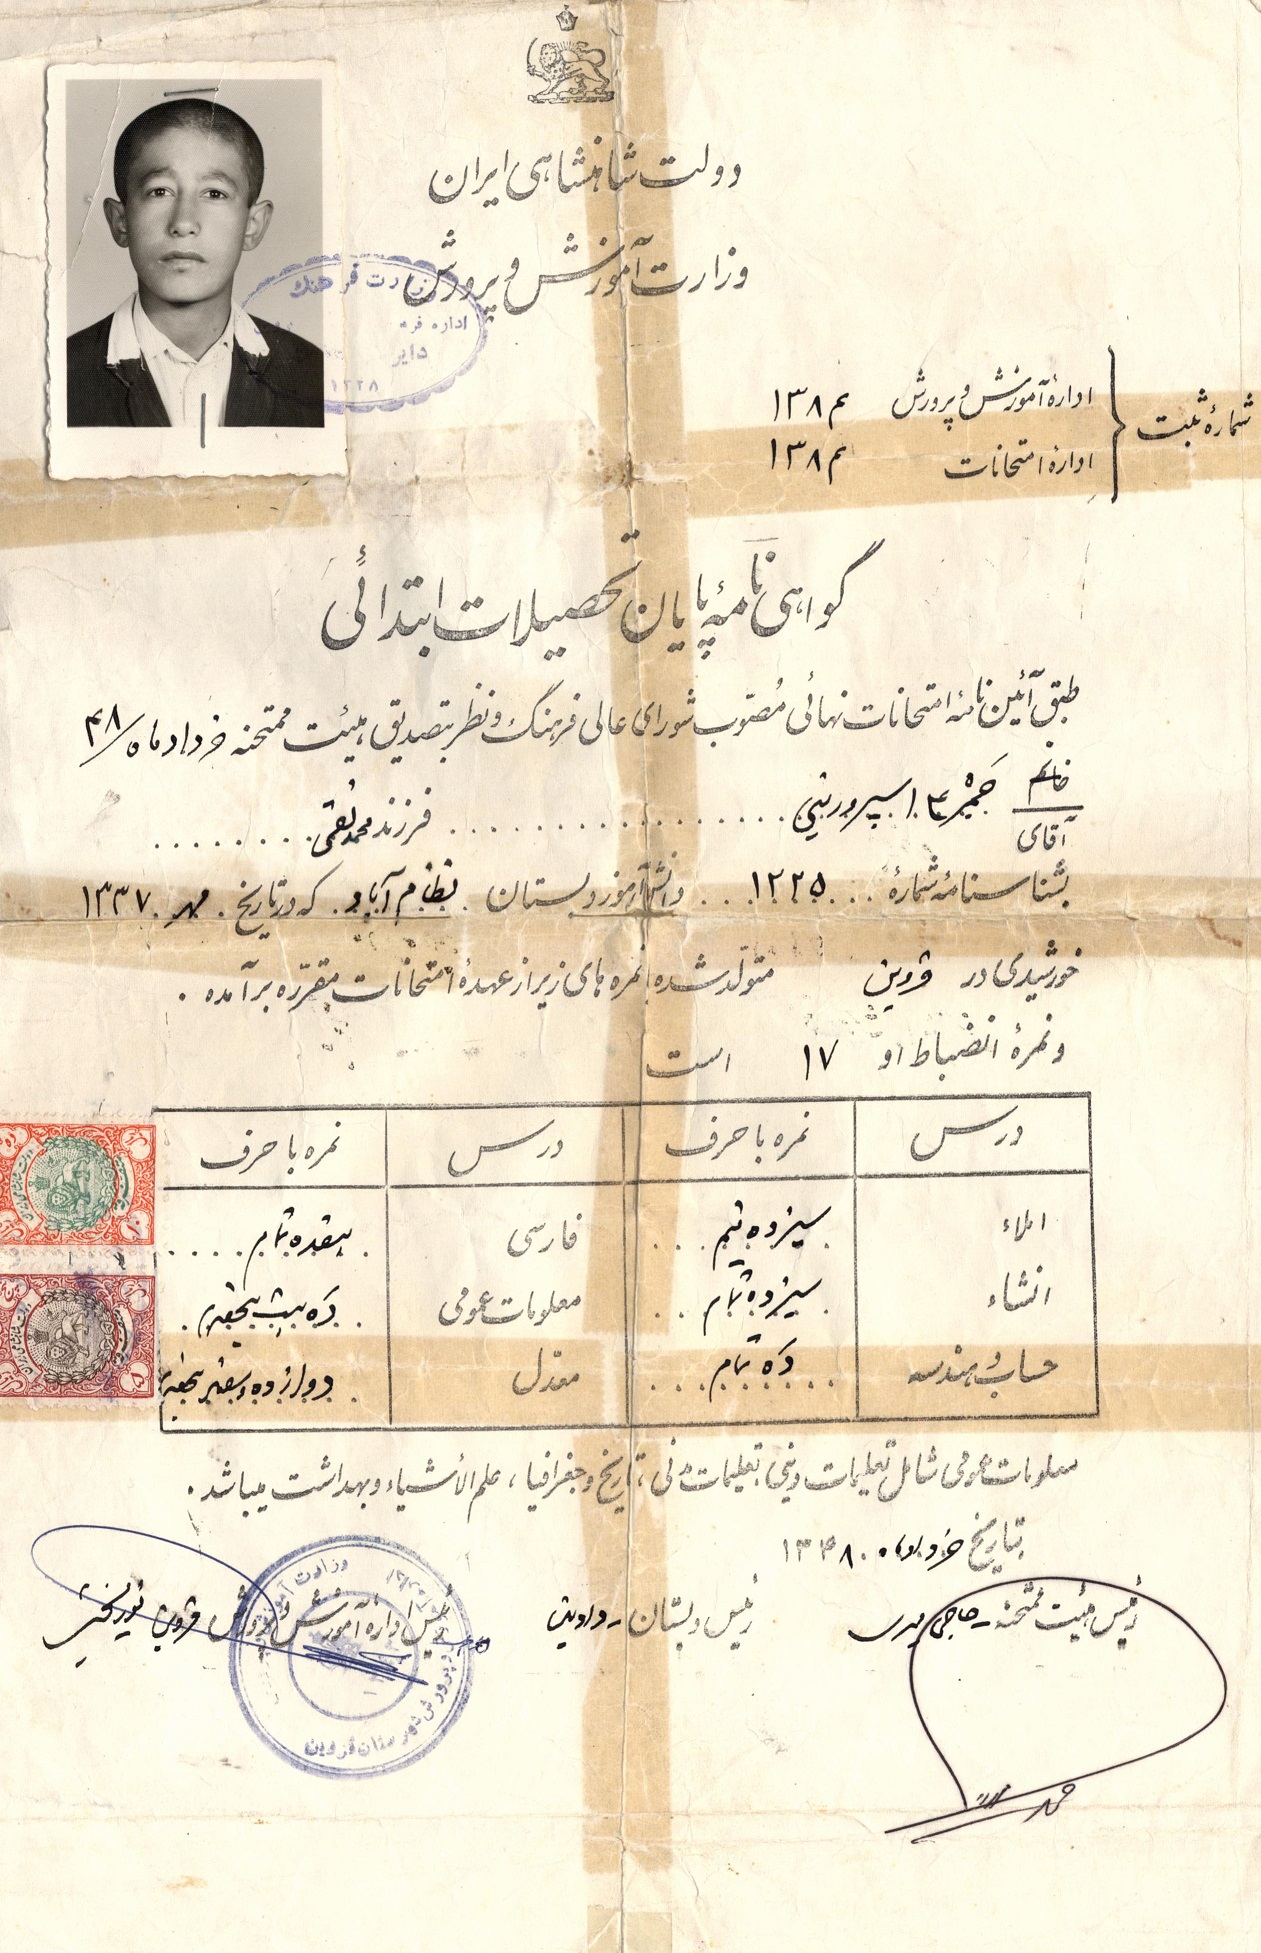 دولت شاهنشاهی ایران
وزارت آموزش و پرورش
وزارت فرهنگ
اداره
دایر
شمارهٔ ثبت
ادارهٔ آموزش و پرورش ۱۳۸م
ادارهٔ امتحانات ۱۳۸م
گواهی نامهٔ پایان تحصیلات ابتدائی
طبق آئین نامهٔ امتحانات نهائی مُصوّب شورای عالی فرهنگ و نظر بتصدیق هیئت ممتحنه خرداد ماه ۴۸
خانم
آقای
فرزند محمد تقی
بشناسنامهٔ شمارهٔ ۱۲۲۵ دانش آموز دبستان نظام آباد که در تاریخ مهر ۱۳۳۷
خورشیدی در قزوین متولد شده با نمره های زیر از عهدهٔ امتحانات مقرّره برآمده .
و نمرهٔ انضباط او ۱۷ است
درس نمره با حرف درس نمره با حرف
املاء سیزده نیم فارسی هیفده تمام
انشاء سیزده تمام معلومات عمومی ده بیست پنج
حساب و هندسه ده تمام معدل دوازده
معلومات عمومی شامل تعلیمات دینی، تعلیمات مدنی، تاریخ و جغرافیا، علم الأشیاء و بهداشت میباشد .
بتاریخ خرداد ماه ۱۳۴۸
رئیس هیئت ممتحنه - حاجی رئیس دبستان - رئیس اداره آموزش و پرورش قزوین
وزارت آموزش و پرورش
آموزش و پرورش شهرستان قزوین